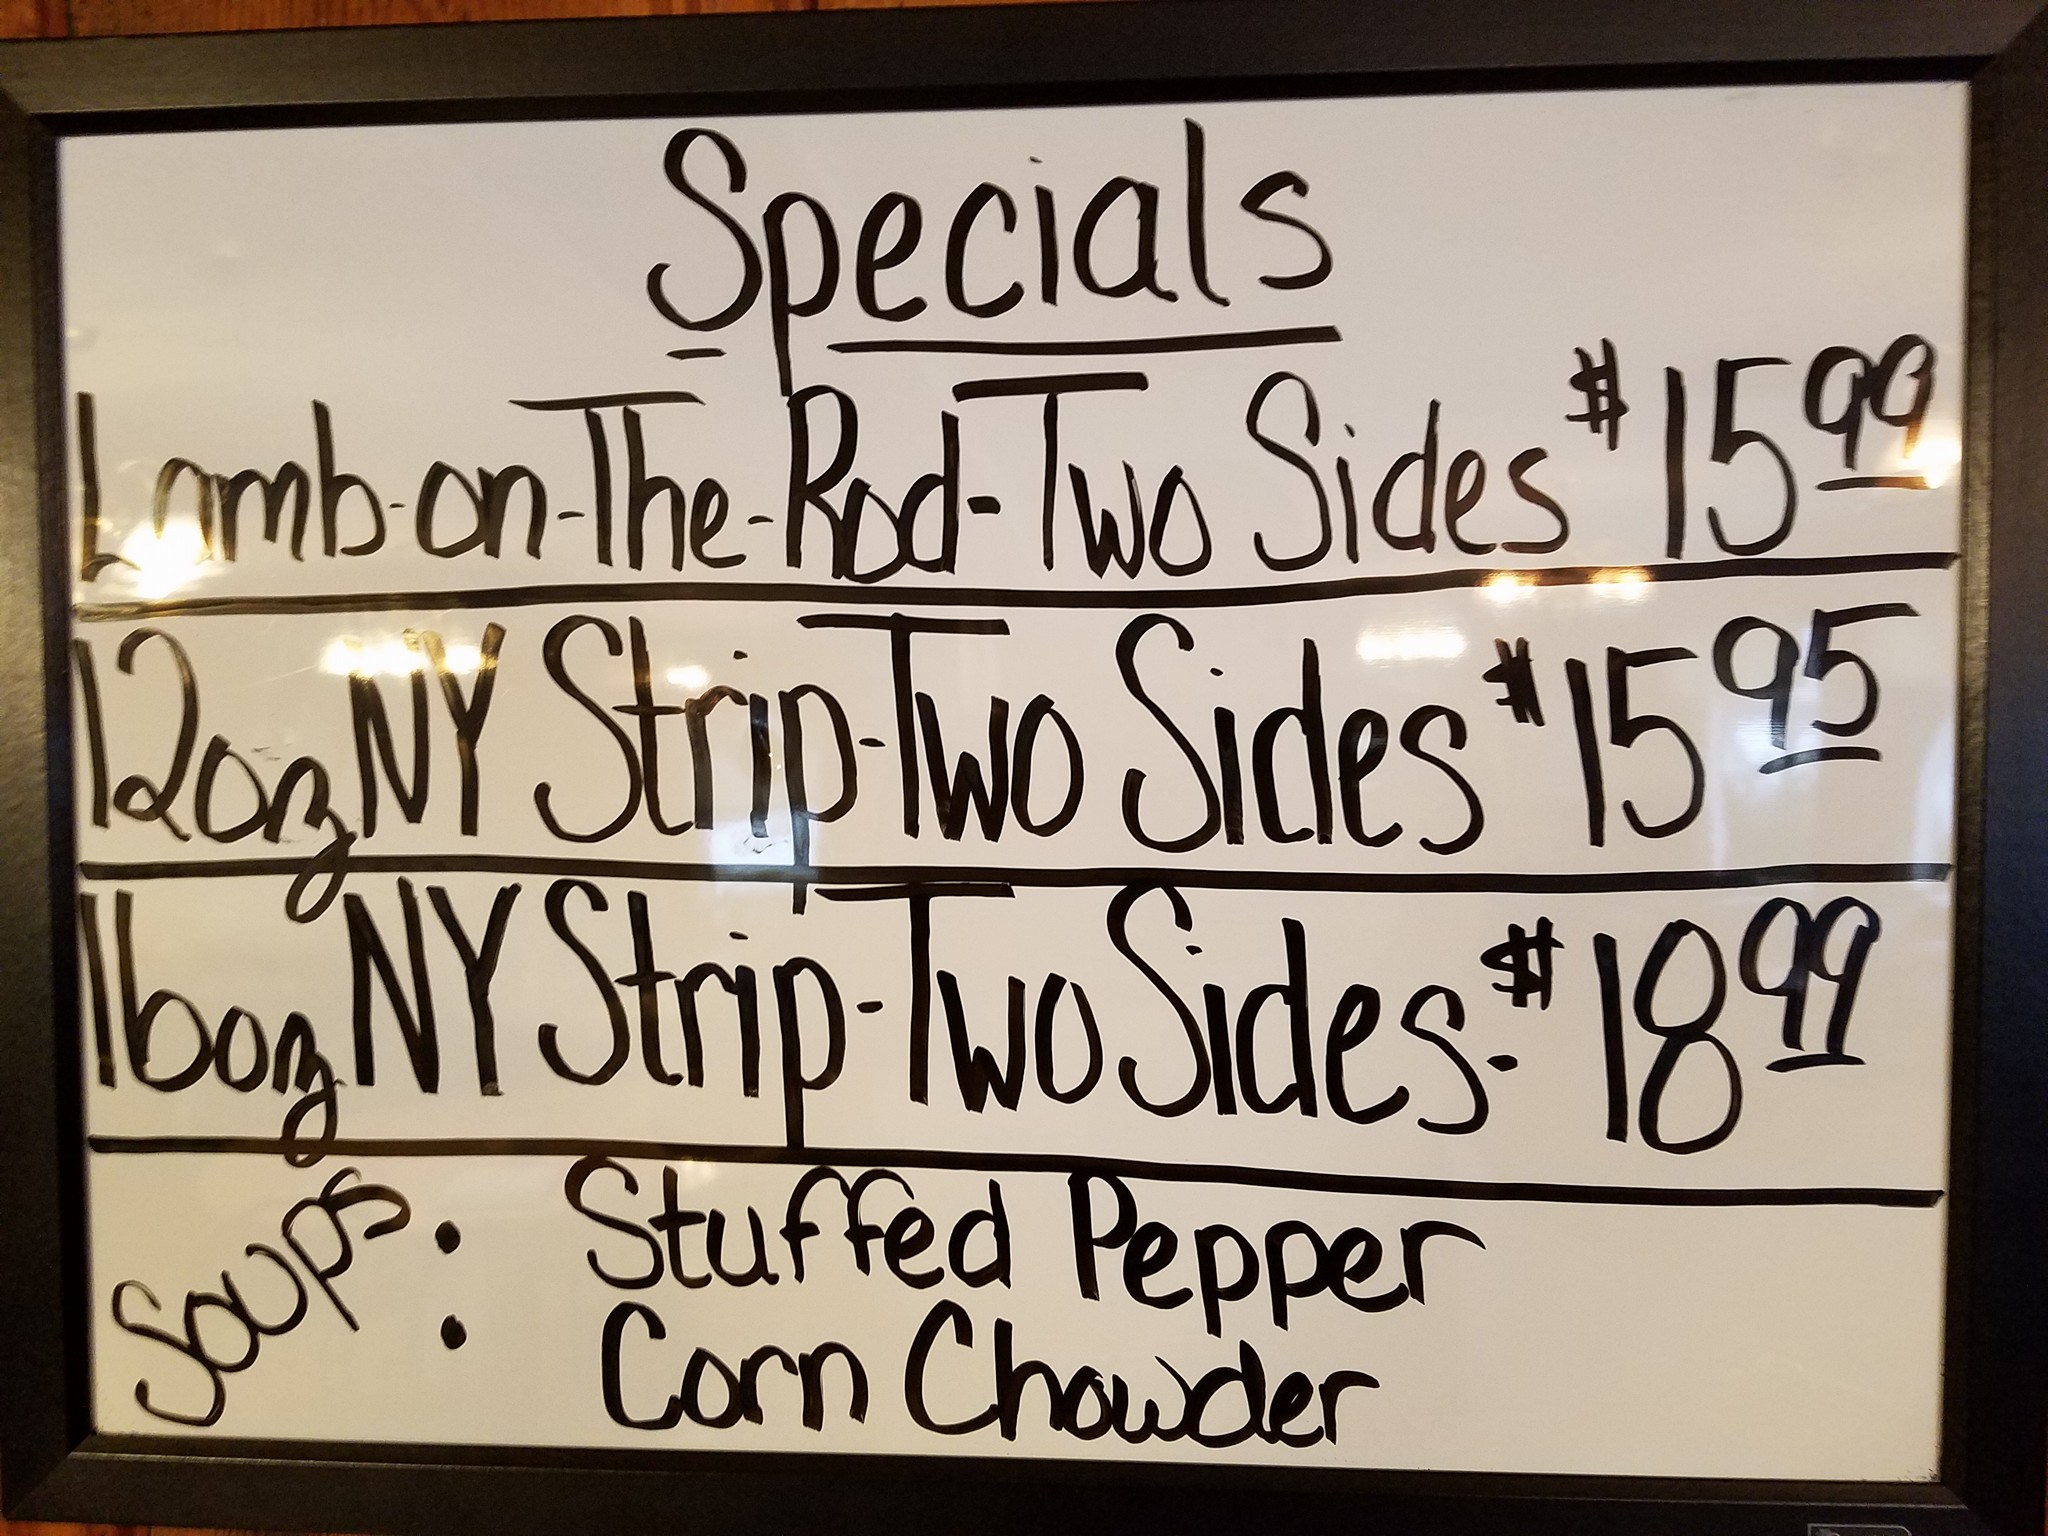 Specials
Lamb-on-The-Rod-Two Sides $15.99
12oz NY Strip-Two Sides $15.95
16oz NY Strip-Two Sides-$18.99
Soups: Stuffed Pepper
Corn Chowder